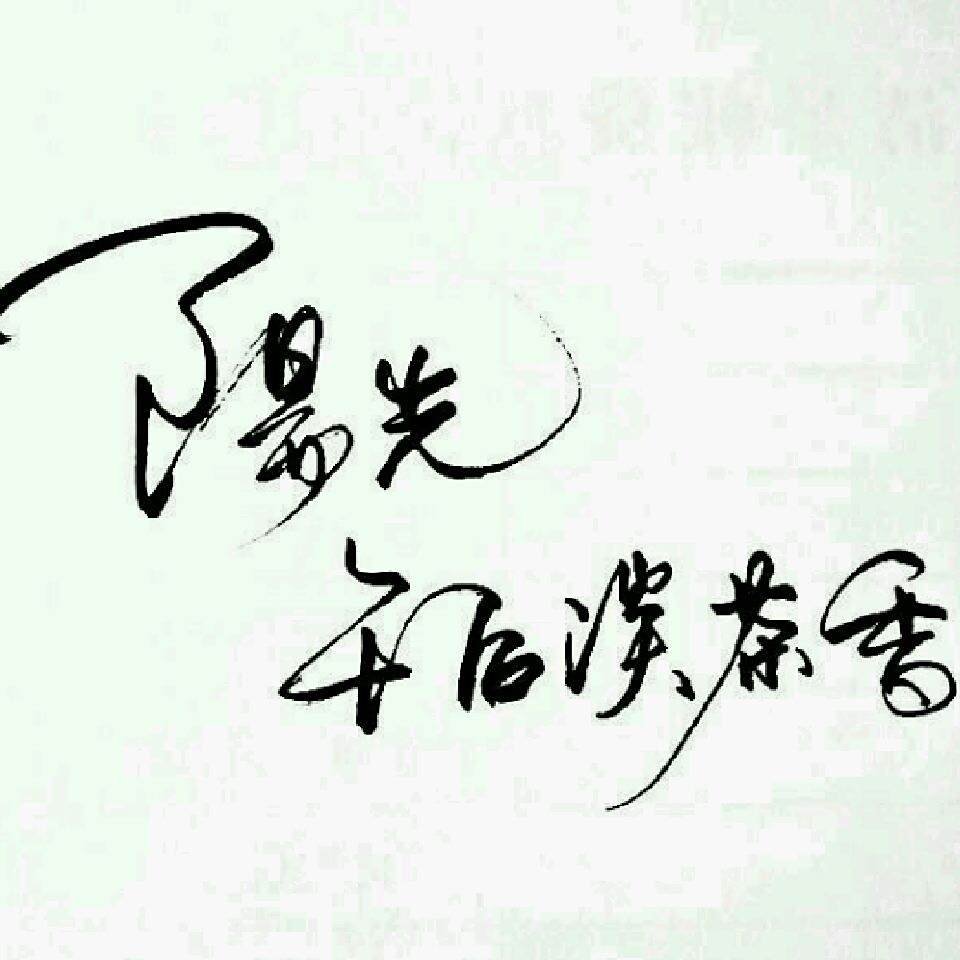 陽光
午后淡茶香